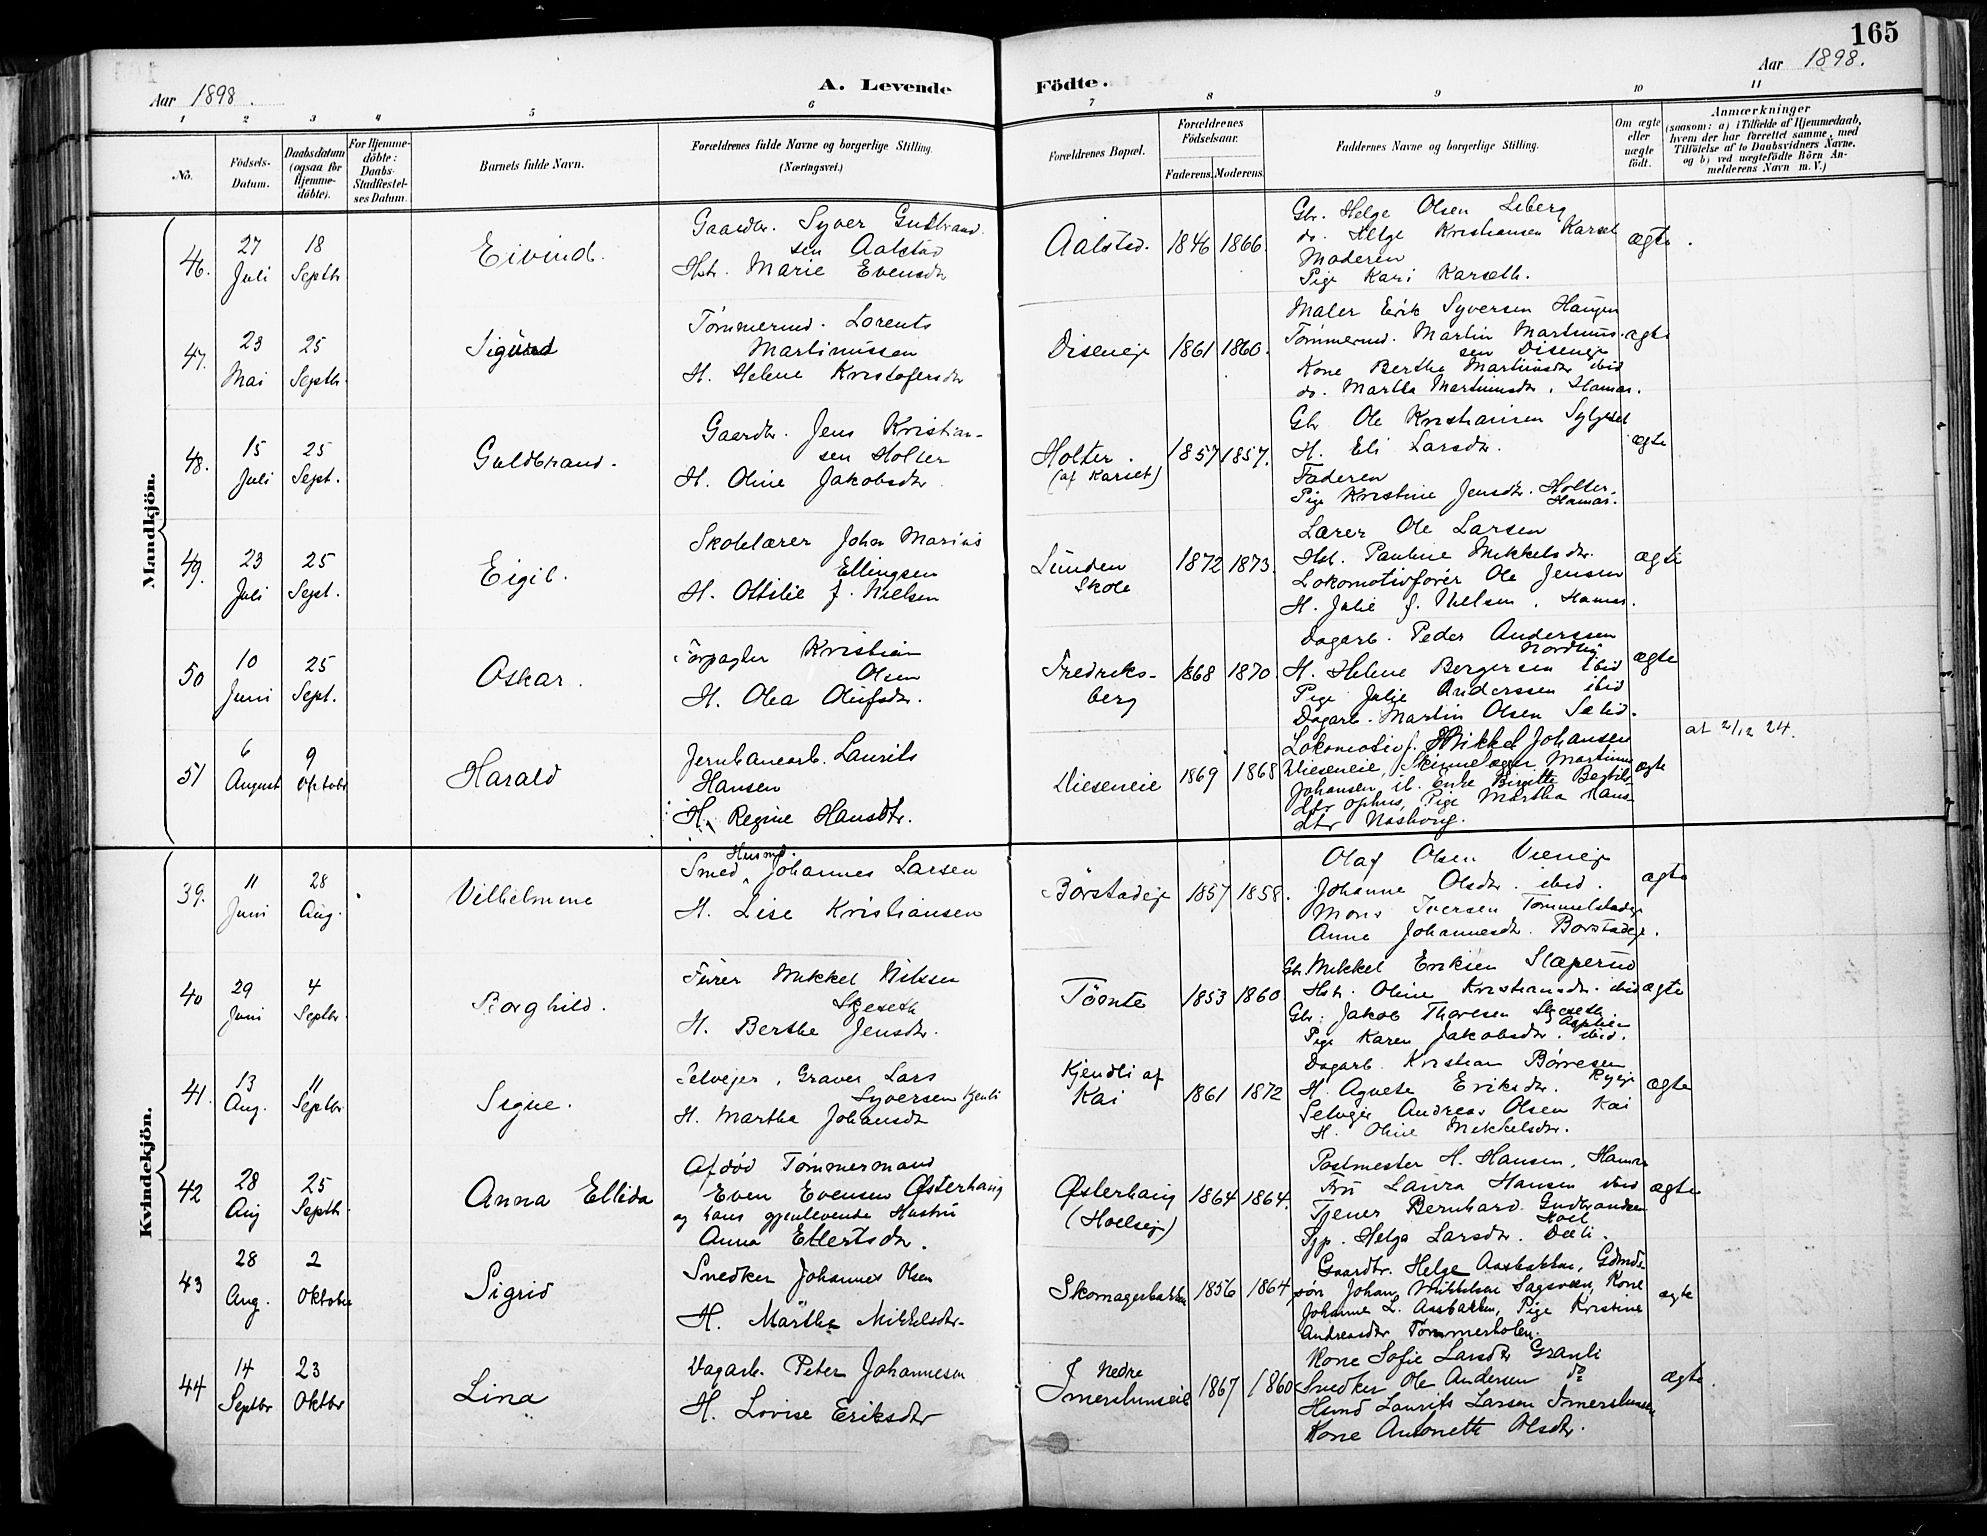 165
Aar 1898.
A. Levende
Födte.
Aar 1898.
1 2 3 4 5 6 7 8 9 10 11
No.
Födsels-Datum.
Daabsdatum (ogsaa for Hjemmedöbte).
For Hjemmedöbte: Daabs-Stadfæstelses Datum.
Barnets fulde Navn.
Forældrenes fulde Navne og borgerlige Stilling.
(Næringsvei.)
Forældrenes Bopæl.
Forældrenes Födselsaar.
Faderens. Moderens.
Faddernes Navne og borgerlige Stilling.
Om ægte eller uægte födt.
Anmærkninger
(saasom: a) i Tilfælde af Hjemmedaab,
hvem der har forrettet samme, med
Tilföielse af to Daabsvidners Navne.
og b) ved uægtefödte Börn An-
melderens Navn m. V.)
Mandkjön.
46. 27 Juli 18 Septbr Eivind.
Gaardbr. Syver Gudbrand
sen Aalstad
Hstr. Marie Evensdtr
Aalstad. 1846 1866.
Gbr. Helge Olsen Liberg
do. Helge Kristiansen Karset
Moderen
Pige Kari Karseth.
ægte.
47. 23 Mai 25 Septbr. Sigurd
Tømmermd. Lorents
Martinussen
H. Helene Kristofersdtr
Diseneje 1861 1860.
Maler Erik Syversen Haugen
Tømmermd. Martin Martinus-
sen Diseneje
Kone Berthe Martinusdtr ibid
do. Martha Martinusdtr. Hamar.
ægte
48. 15 Juli 25 Sept. Guldbrand.
Gaardbr. Jens Kristian-
sen Holter
H. Oline Jakobsdtr.
Holter.
(af Karset)
1857 1857.
Gbr Ole Kristiansen
H. Eli Larsdtr.
Faderen
Pige Kristine Jensdtr. Holter.
Hamar.
ægte
49. 23 Juli 25 Sept. Eigil.
Skolelærer Johan Marius
Ellingsen
H. Ottilie f. Nielsen
Lunden
Skole
1872 1873.
Lærer Ole Larsen
Hst. Pauline Mikkelsdtr.
Lokomotivfører Ole Jensen
H. Julie f. Nielsen. Hamar.
ægte
50 10 Juni 25 Sept. Oskar.
Forpagter Kristian
Olsen
H. Olea Olufsdtr.
Fredriks-
berg
1868 1870
Dagarb. Peder Anderssen
Nordli
H. Helene Bergersen ibid
Pige Julie Anderssen ibid
Dagarb. Martin Olsen
ægte
51 6 August 9 Oktobr Harald
Jernbanearb. Laurits
Hansen
H. Regine Hansdtr.
Vieseneie 1869 1868
Lokomotivf. Mikkel Johansen
Vieseneie, Skinnelægger Martinus
Johansen ib. Enke Birgitte Bertils-
dtr Ophus, Pige Martha Hans-
dtr Nashoug.
ægte
at 2/12 24.
Kvindekjön.
39. 11 Juni 28 Aug. Vilhelmine
Husmd.
Smed, Johannes Larsen
H. Lise Kristiansen
Børstadeje 1857 1858.
Olaf Olsen Vieneje
Johanne Olsdtr. ibid.
Mons Iversen Tommelstadeje
Anne Johannesdtr. Børstadeje.
ægte
40 29 Juni 4 Septbr. Borghild.
Fører Mikkel Nilsen
Skjeseth
H. Berthe Jensdtr.
Tømte 1853 1860
Gbr. Mikkel Eriksen Slaperud
Hstr. Oline Kristiansdtr. ibid
Gbr. Jakob Thoresen Skjeseth
Pige Karen Jakobsdtr. ibid.
ægte
41. 13 Aug. 11 Septbr Signe.
Selvejer, Graver Lars
Syversen Kjenli
H. Martha Johansdtr
Kjendli af
Kai
1861 1872
Dagarb. Kristian Børresen
H. Agnete Eriksdtr. Ryeje
Selvejer Andreas Olsen Kai
H. Oline Mikkelsdtr.
ægte
42 28 Aug 25 Septbr. Anna Ellida
Afdød Tømmermand
Even Evensen Østerhaug
og hans gjenlevende Hustru
Anna Ellertsdtr.
Østerhaug
(Hoelseje)
1864 1864.
Postmester H. Hansen, Hamar
Fru Laura Hansen ibid
Tjener Bernhard Gudbrandsen
Hoel
Tjp. Helga Larsdtr. Dæli.
ægte
43 28 Aug. 2 Oktober Sigrid
Snedker Johannes Olsen
H. Märthe Mikkelsdtr.
Skomagerbakken 1856 1864
Gaardbr. Helge Aasbakken, Gdmds-
søn Johan Mikkelsen Sagsveen, Kone
Johanne L. Aasbakken, Pige Kristine
Andreasdtr Tømmerholen.
ægte
44 14 Septbr 23 Oktbr Lina
Dagarb. Peter Johannesen
H. Lovise Eriksdtr
Nedre
Imerslunseie
1867 1860
Kone Sofie Larsdtr Granli
Snedker Ole Andersen do
Hsmd Laurits Larsen Imerslunseie
Kone Antonette Olsdtr.
ægte.